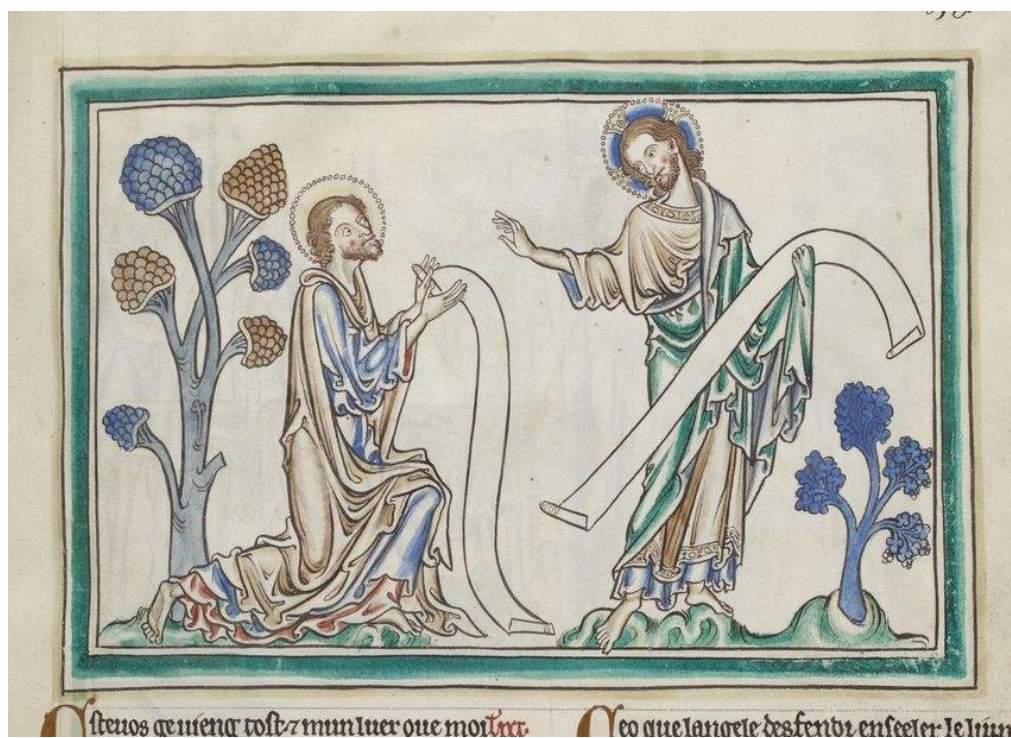 stevos ge vieng tost ⁊ mun luer oue moi
Ceo que langele desfendi enseeler le liure